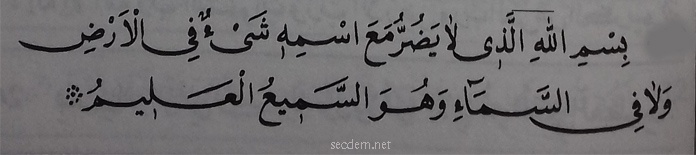 بِسْمِ اللّٰهِ الَّذِى لَا يَضُرُّ مَعَ اسْمِهٖ شَىْءٌ فِى الْاَرْضِ
وَلَا فِى السَّمَٓاءِ وَهُوَ السَّمٖيعُ الْعَلٖيمُ ❊
secdem.net